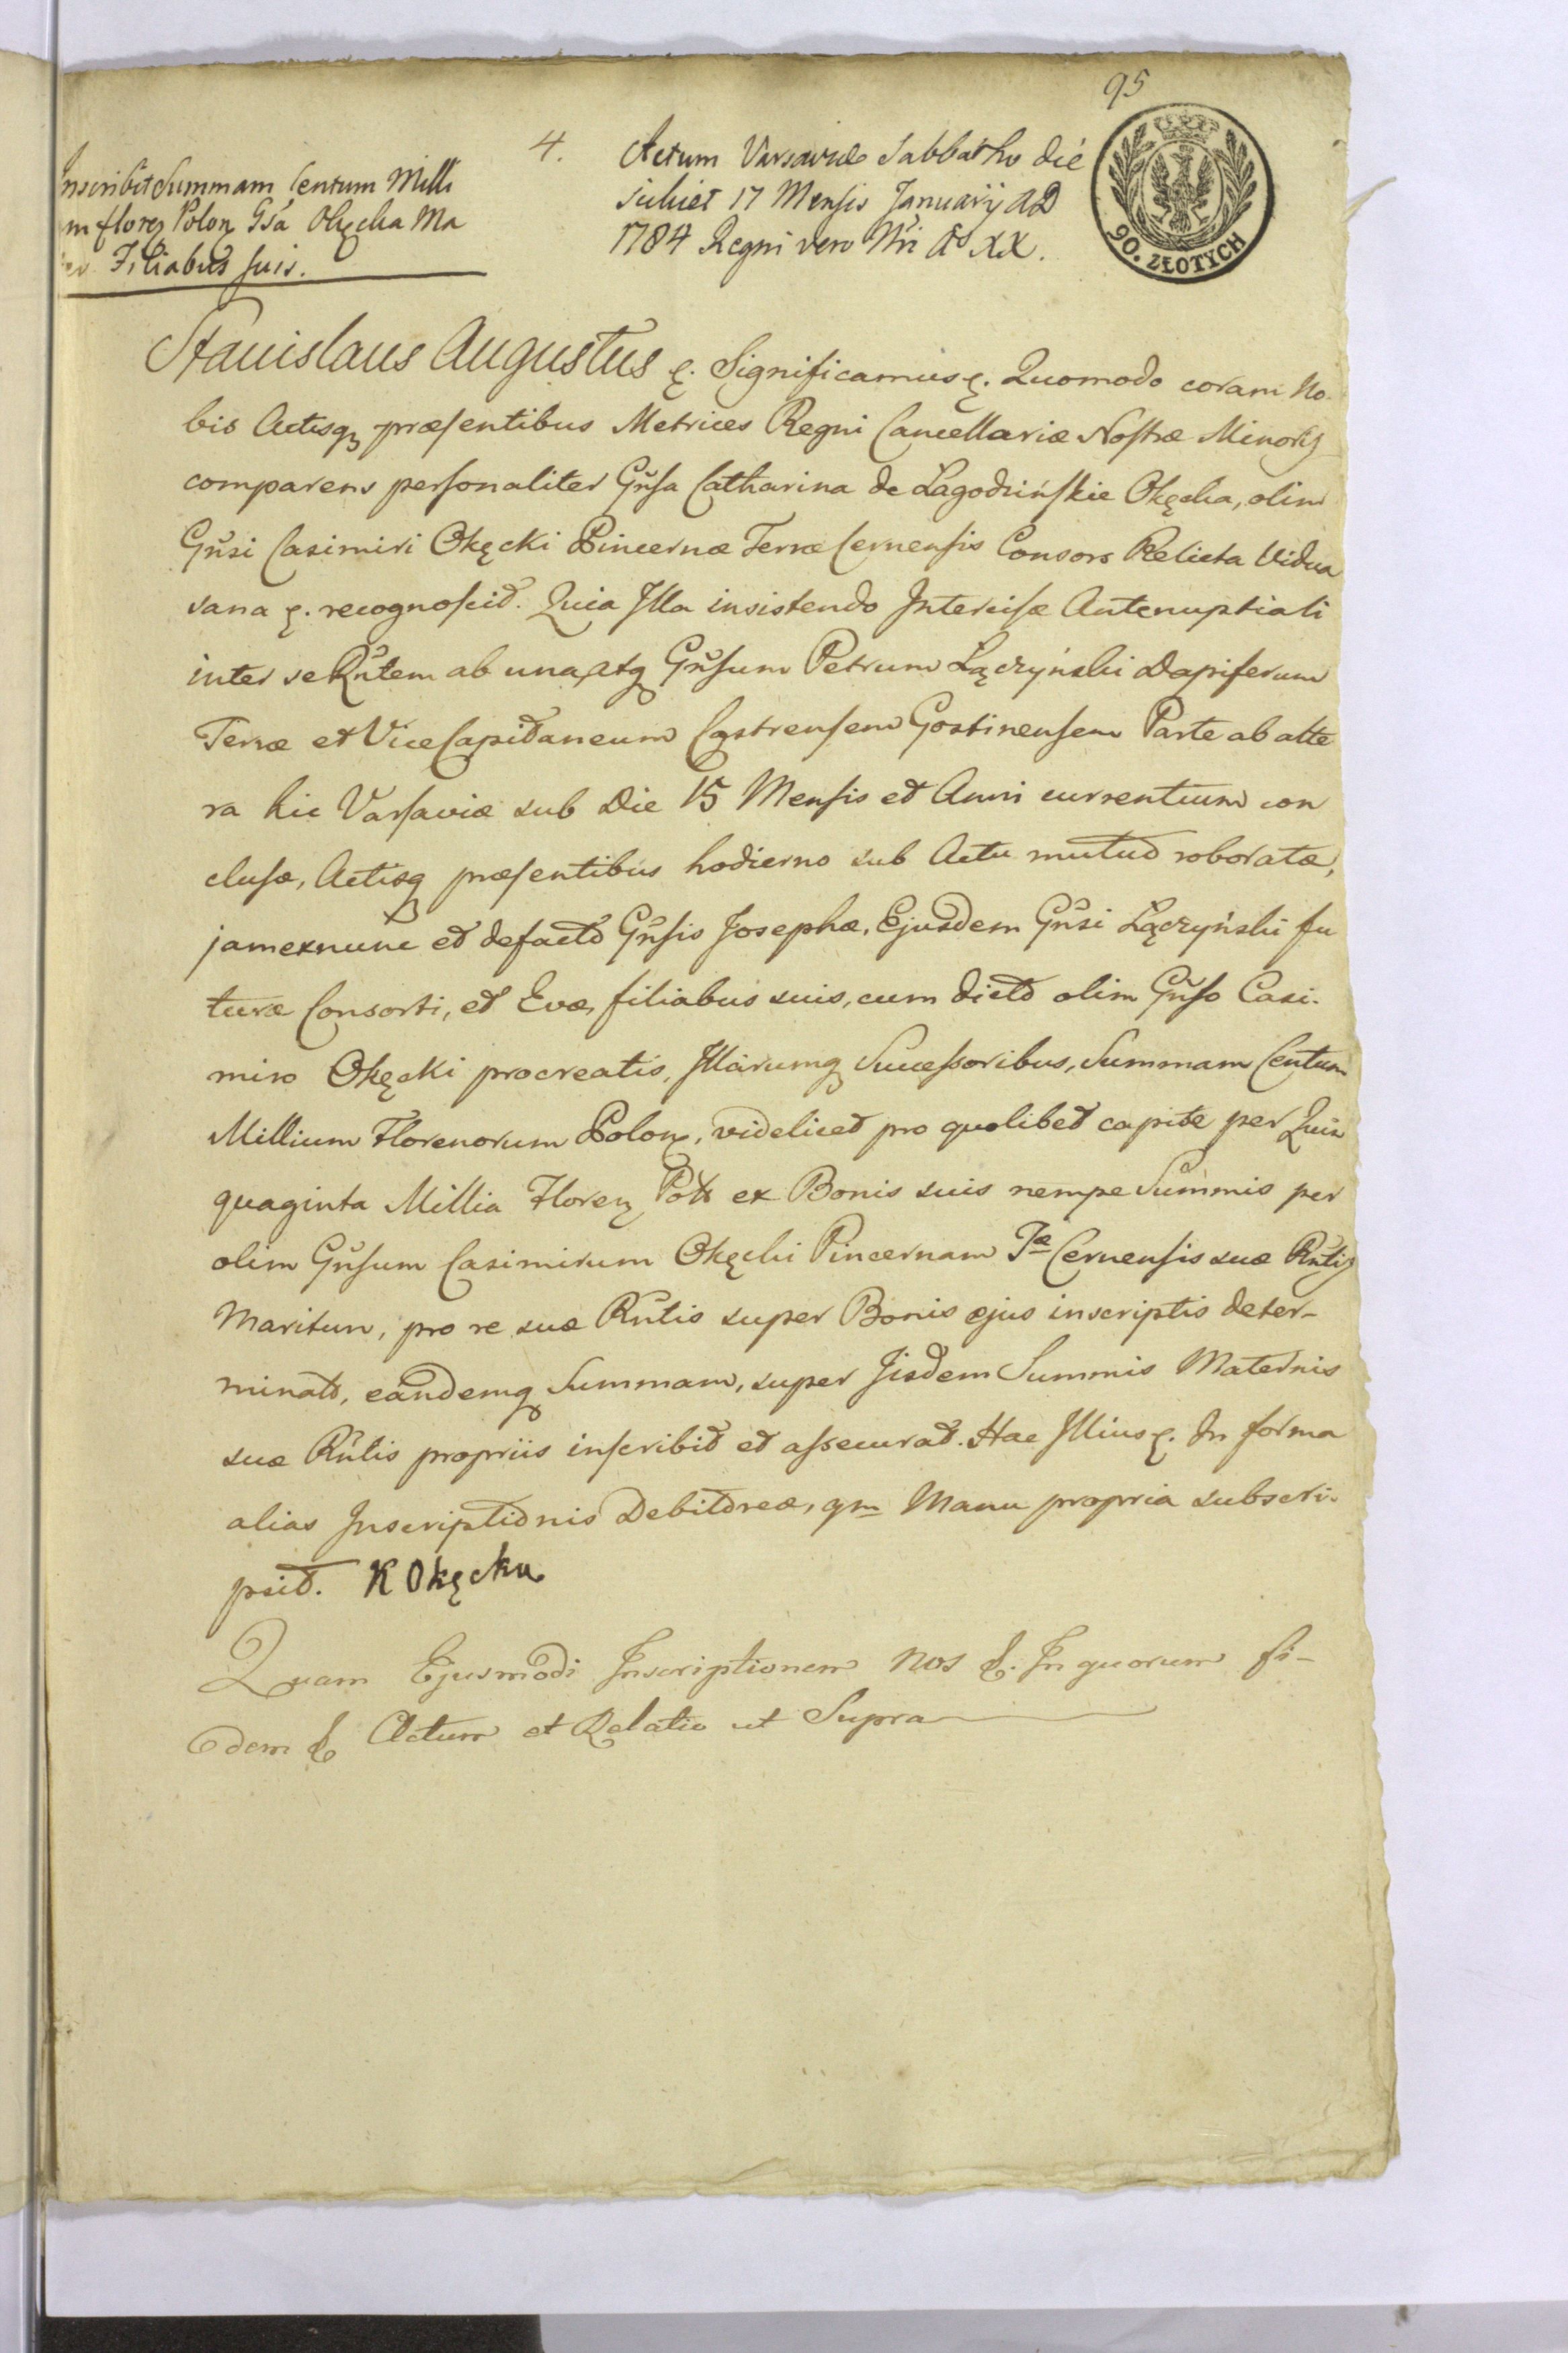 95
4.
Actum Varsaviæ Sabbatho die
scilicet 17 Mensis Januarij AD
1784 Regni vero Nri Ao XX.
90. ZŁOTYCH
Inscribit Summam Centum Milli
m florez Polon Gsa Okęcka Ma
Filiabus suis.
Stanislaus Augustus &. Significamus &. Quomodo coram No
bis Actisq præsentibus Metrices Regni Cancellariæ Nostræ Minoris
comparens personaliter Gnsa Catharina de Łagodzińskie Okęcka, olim
Gnsi Casimiri Okęcki Pincernæ Terræ Cernensis Consors Relicta Vidua
sana &. recognoscit. Quia Illa insistendo Intercisæ Antenuptiali
inter se Rntem ab una, atq Gnsum Petrum Łączyński Dapiferum
Terræ et ViceCapitaneum Castrensem Gostinensem Parte ab alte
ra hic Varsaviæ sub Die 15 Mensis et Anni currentium con
clusæ, Actisq præsentibus hodierno sub Actu mutuo roboratæ,
jamexnunc et defacto Gnsis Josephæ, Ejusdem Gnsi Łączyński fu
turæ Consorti, et Evæ, filiabus suis, cum dicto olim Gnso Casi-
miro Okęcki procreatis, Illarumq Successoribus, Summam Centum
Millium Florenorum Polon, videlicet pro quolibet capite per Quin
quaginta Millia Floren Poll ex Bonis suis nempe Summis per
olim Gnsum Casimirum Okęcki Pincernam Tæ Cernensis suæ Rntis
Maritum, pro re suæ Rntis super Bonis ejus inscriptis deter-
minato, eandemq Summam, super Jisdem Summis Maternis
suæ Rntis propriis inscribit et assecurat. Hac Illius &. In forma
alias Inscriptionis Debitoreæ, qm Manu propria subscri-
psit. K Okęcka
Quam Ejusmodi Inscriptionem Nos &. In quorum fi-
dem & Actum et Relatio ut Supra